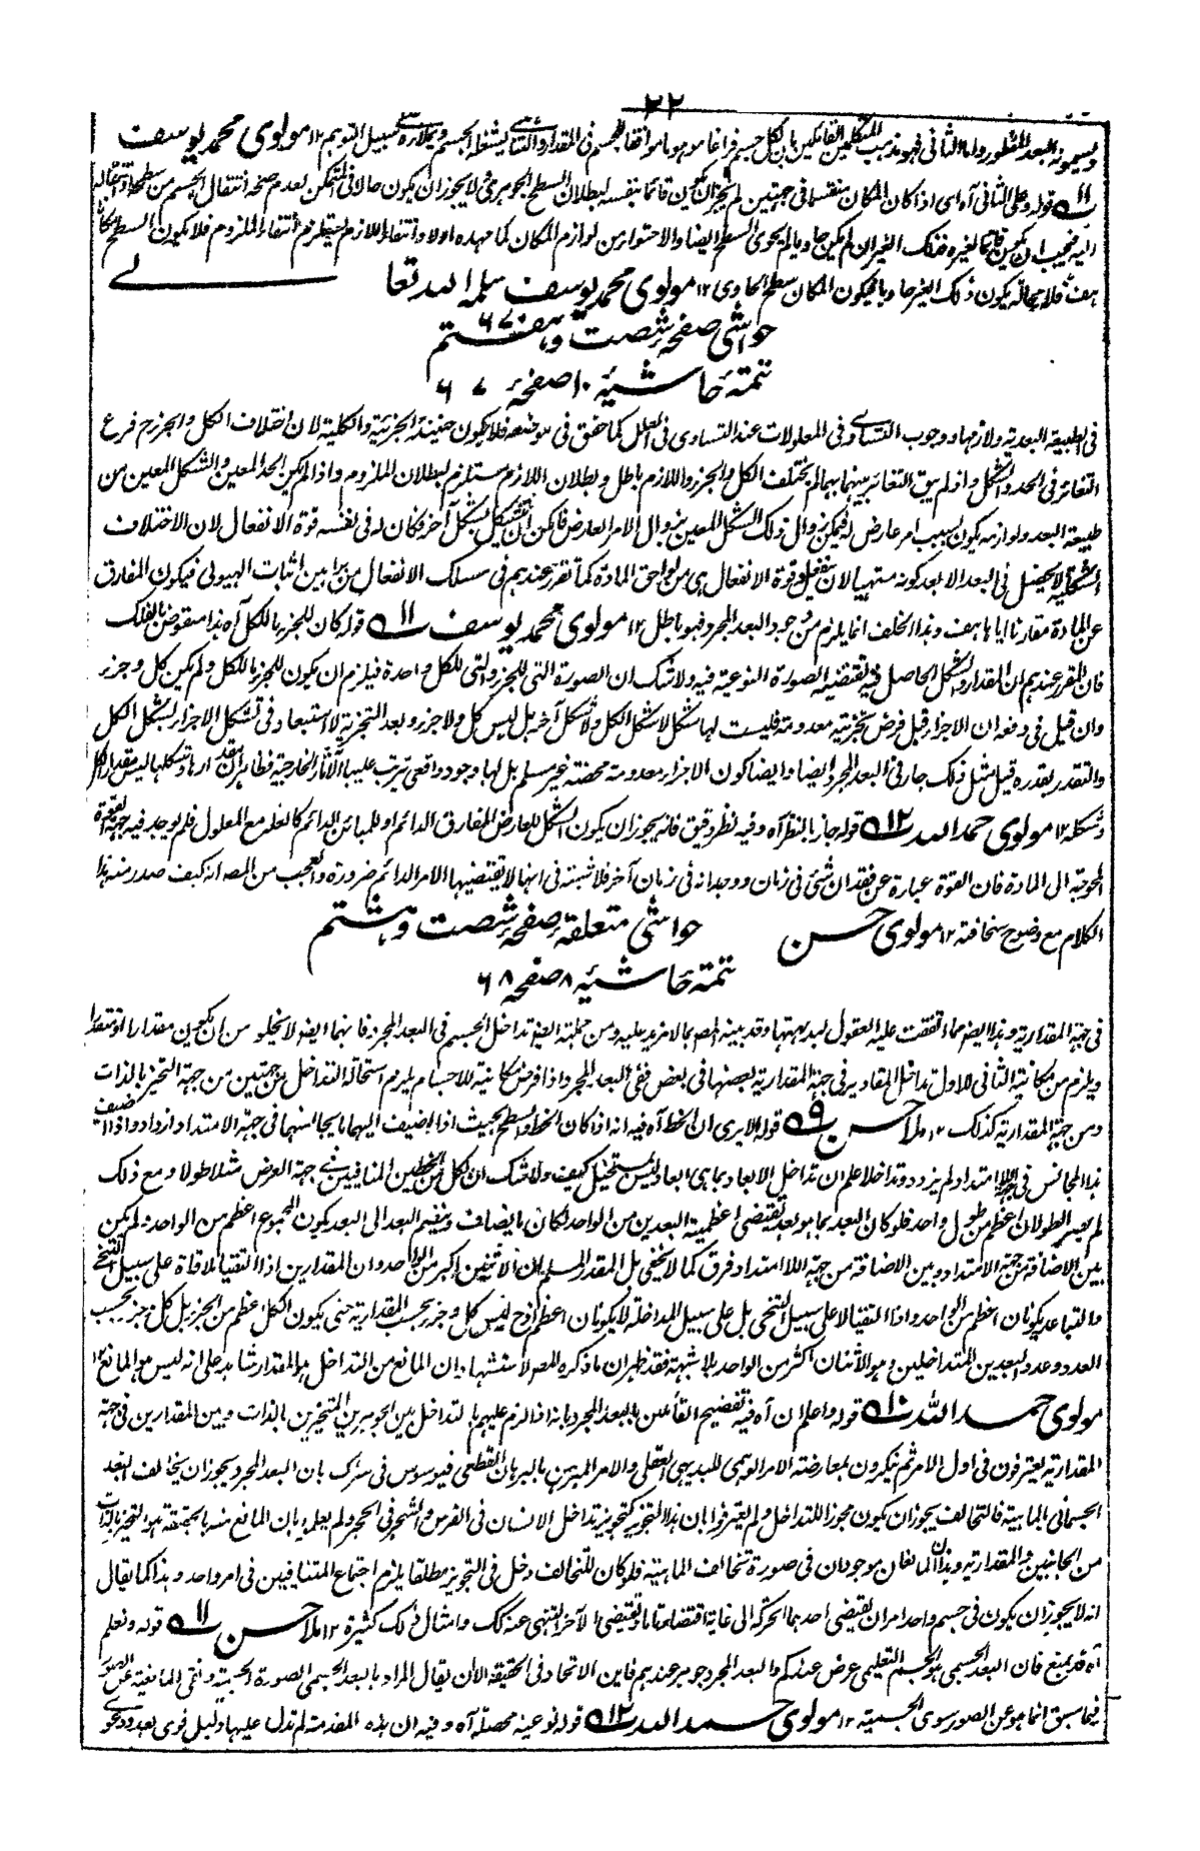 ٢٢
ويسمونه البعد المفطور واما الثاني فهو مذهب المتكلمين القائلين بان لكل جسم فراغا موهوما موافقا للجسم في المقدار والتناهي يشغله الجسم ويملأه على سبيل التوهم ١٢ مولوى محمد يوسف
١١ قوله وعلى الثاني آه اي اذا كان المكان منقسما في جهتين لم يجز ان يكون قائما بنفسه لبطلان السطح الجوهري ولا يجوز ان يكون حالا في المتمكن لعدم صحة انتقال الجسم من سطحه وانتقاله
اليه فيجب ان يكون قائما لغيره فذلك الغير ان لم يكن حاويا لم يحوى السطح ايضا والاحتواء من لوازم المكان كما مهده اولا وانتفاء اللازم يستلزم انتفاء الملزوم فلا يكون السطح مكانا
هف فلا محالة يكون ذلك الغير حاويا فيكون المكان سطح الحاوى ١٢ مولوى محمد يوسف سلمه الله تعالى
حواشى صفحه شصت وهفتم ٦٧
تتمة حاشية ١٠ صفحة ٦٧
في الطبيعة البعدية ولازمها ووجوب التساوى في المعلولات عند التساوى في العلل كما حقق في موضعه فلا يكون حينئذ الجزئية والكلية لان اختلاف الكل والجزء فرع
التغائر في الحد والشكل واذ لم يبق التغائر بينهما بهما لم يختلف الكل والجزء واللازم باطل وبطلان اللازم مستلزم لبطلان الملزوم واذا لم يكن الحد المعين والشكل المعين من
طبيعة البعد ولوازمه يكون بسبب امر عارض له فيمكن زوال ذلك الشكل المعين بزوال الامر العارض فامكن ان يتشكل بشكل آخر فكان له في نفسه قوة الانفعال لان الاختلاف
الشكلية لا يحصل في البعد الا بعد كونه متهيا لان ينفعل وقوة الانفعال هي من لواحق المادة كما تقرر عندهم في مسلك الانفعال من براهين اثبات الهيولى فيكون المفارق
عن المادة مقارنا اياها هف وهذا الخلف انما يلزم من وجود البعد المجرد فهو باطل ١٢ مولوى محمد يوسف ١١ قوله كان للجزء ما للكل آه هذا منقوض بالفلك
فان المقرر عندهم ان المقدار والشكل الحاصل فيه تقتضيه الصورة النوعية فيه ولا شك ان الصورة التي للجزء والتي للكل واحدة فيلزم ان يكون للجزء ما للكل ولم يكن كل وجزء
وان قيل في دفعه ان الاجزاء قبل فرض تجزئية معدومة فليست لها شكل لا شكل الكل ولا شكل آخر بل ليس كل ولا جزء وبعد التجزية لا استبعاد في تشكل الاجزاء بشكل الكل
والتقدر بقدره قيل مثل ذلك جار في البعد المجرد ايضا وايضا كون الاجزاء معدومة محضة غير مسلم بل لها وجود واقعي يترتب عليها الآثار الخارجية فظاهر ان مقدارها وشكلها ليس مقدار الكل
وشكله ١٢ مولوى حمد الله ١٢ قوله جاز بالنظر آه وفيه نظر دقيق فانه يجوز ان يكون الشكل للعارض المفارق الدائم او للمبائن الدائم كالعلة مع المعلول فلم يوجد فيه جهة القوة
المحوجة الى المادة فان القوة عبارة عن فقدان شئ في زمان ووجدانه في زمان آخر فلا شبهة في انها لا تقتضيها الامر الدائم ضرورة والعجب من المص انه كيف صدر منه هذا
الكلام مع وضوح سخافته ١٢ مولوى حسن
حواشى متعلقه صفحه شصت وهشتم
تتمة حاشية ٨ صفحة ٦٨
في جهة المقدارية وهذا ايضا مما اتفقت عليه العقول لبداهتها وقد بينه المص بما لا مزيد عليه ومن جملة الصفة تداخل الجسم في البعد المجرد فانهما ايضا لا يخلو من ان يكون مقدارا او متقدرا
ويلزم من مكانية الثاني للاول تداخل المقادير في جهة المقدارية بعضها في بعض ففي البعد المجرد اذا فرض مكانية للاجسام يلزم استحالة التداخل من جهتين من جهة التحيز بالذات
ومن جهة المقدارية كذلك ١٢ ملا حسن ٩ قوله الا يرى ان الخط آه فيه انه اذا كان الخط والسطح بحيث اذا اضيف اليهما ما يجانسهما في جهة الامتداد ازداد واذا اضيف
هذا المجانس في جهة اللا امتداد لم يزدد وتداخلا علم ان تداخل الابعاد بما هي ابعاد ليس بمستحيل كيف ولا شك ان لكل من الخطين المتلاقيين في جهة العرض مثلا طولا ومع ذلك
لم يصير الطولان اعظم من طول واحد فلو كان البعد بما هو بعد يقتضي اعظمية البعدين من الواحد لكان ما يضاف وينضم البعد الى البعد يكون المجموع اعظم من الواحد ولم يكن
بين الاضافة من جهة الامتداد وبين الاضافة من جهة اللا امتداد فرق كما لا يخفى بل المقدر المسلم ان الاثنين اكبر من الواحد وان المقدارين اذا التقيا ملاقاة على سبيل التنحي
والتباعد يكونان اعظم من الواحد واذا التقيا لا على سبيل التنحي بل على سبيل المداخلة لا يكونان اعظم اذ ح ليس كل وجزء بحسب المقدارية حتى يكون الكل اعظم من الجزء بل كل وجزء بحسب
العدد وعدد البعدين المتداخلين وهو الاثنان اكثر من الواحد بلا شبهة فقد ظهر ان ما ذكره المص لا ستشهاد ان المانع من التداخل هو المقدار شاهد على انه ليس هو المانع ١٢
مولوى حمد الله ١٠ قوله واعلم ان آه فيه تفضيح القائلين بالبعد المجرد بانه اذا لزم عليهم التداخل بين الجوهرين المتحيزين بالذات وبين المقدارين في جهة
المقدارية يعترفون في اول الامر ثم ينكرون بمعارضة الامر الوهمى للبديهي العقلى والامر المبرهن بالبرهان القطعى فيوسوس في سرك بان البعد المجرد يجوز ان يخالف البعد
الجسماني بالماهية فالتخالف يجوز ان يكون مجوزا للتداخل ولم يعترفوا بان هذا التجويز كتجويز تداخل الانسان في الفرس والشجر في الحجر ولم يعلموا بان المانع منه بالحقيقة هو التحيز بالذات
من الجانبين والمقدارية وهذان المانعان موجودان في صورة تخالف الماهية فلو كان للتخالف دخل في التجويز مطلقا يلزم اجتماع المتنافيين في امر واحد وهذا كما يقال
انه لا يجوز ان يكون في جسم واحد امران يقتضي احدهما الحركة الى غاية اقتضاء تاما ويقتضي الآخر النهى عنه ذلك وامثال ذلك كثيرة ١٢ ملا حسن ١١ قوله ونعلم
آه قد يمنع فان البعد الجسمي هو الجسم التعليمى عرض عندكم والبعد المجرد جوهر عندهم فاين الاتحاد في الحقيقة الا ان يقال المراد بالبعد الجسمى الصورة الجسمية ونفى المانعية عن الصور
فيما سبق انما هو عن الصور سوى الجسمية ١٢ مولوى حمد الله ١٢ قوله نوعية محصلة آه وفيه ان هذه المقدمة لم تدل عليها دليل قوى بعد ودعوى